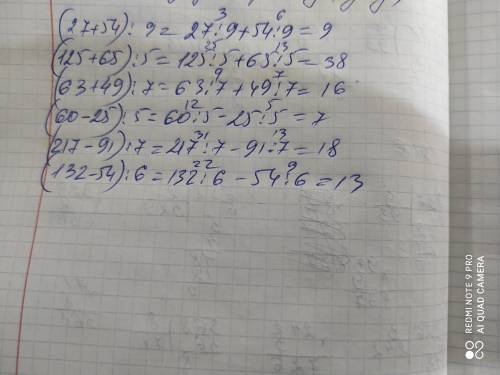 (27+54):9=27:9+54:9=9
3 6
(125+65):5=125:5+65:5=38
25 13
(63+49):7=63:7+49:7=16
9 7
(60-25):5=60:5-25:5=7
12 5
(217-91):7=217:7-91:7=18
31 13
(132-54):6=132:6-54:6=13
22 9
REDMI NOTE 9 PRO
AI QUAD CAMERA